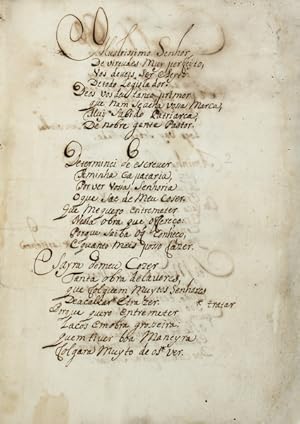 Illustrissimo Senhor,
De virtudes Muy perfeyto,
Vos deveis Ser Eleyto
De todo Legislador:
Deis vos do lanço primor
que nam Seuella vossa Marca,
Muy Sabido Patriarca,
De nobre gente Pastor.
Determinei de escrever
A minha Çapataria,
Por ver Vossa Senhoria
O que Sae de Meu Cozer.
Que me quero Entremeter
Nesta obra que offereço
Porque Saiba o que Conheço,
E quanto Mais posso fazer.
Sayra de meu Cozer
Tanta obra de lavores,
que folguem Muytos Senhores
De a calçar Etrazer. * trajar
Porque quero Entremeter
Laços Em obra grosseira
Quem tiver boa Maneyra
Folgara Muyto de os Ver.